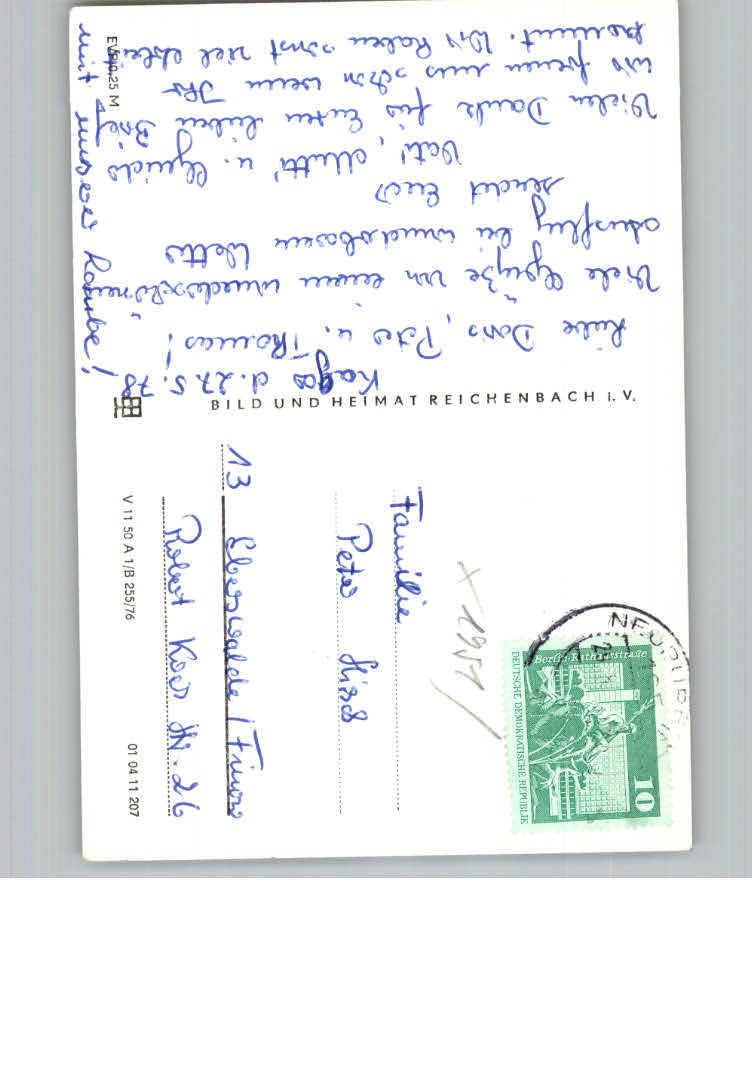 Kagar d. 27.5.78
Liebe Doris, Peter u. Thomas!
Viele Grüße von einem wunderschönen
Ausflug bei wunderbarem Wetter
sendet Euch
Vati, Mutti u. Guido
Vielen Dank für Euren lieben Brief
wir freuen uns schon wenn Ihr
kommt. Wir haben sonst viel
mit unserer
EVP 0,25 M
BILD UND HEIMAT REICHENBACH i. V.
V 11 50 A 1/B 255/76
01 04 11 207
Familie
Peter
13 Eberswalde / Finow
Robert Koch Str. 26
x 1951
Berlin-Rathausstraße
DEUTSCHE DEMOKRATISCHE REPUBLIK
10